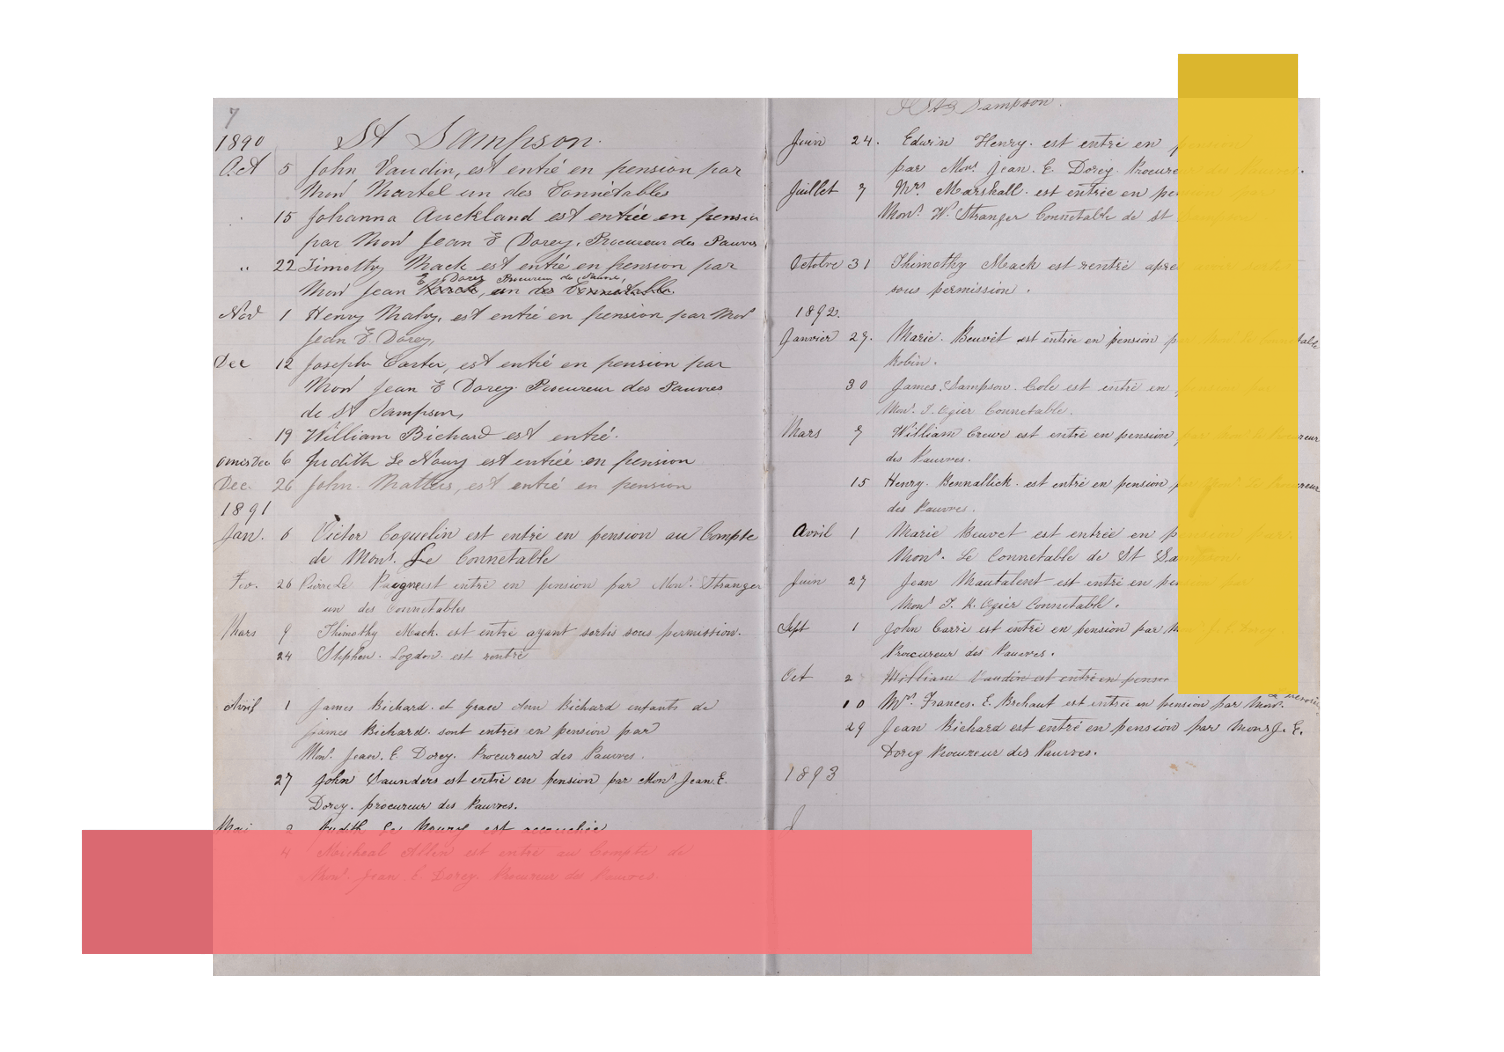 7
1890 St Sampson.
Oct 5 John Vaudin, est entré en pension par
Mons Martel un des Connétables
15 Johanna Auckland est entrée en pension
par Mons Jean E Dorey, Procureur des Pauvres
" 22 Timothy Mack est entré en pension par
E Dorey Procureur de Pauvre,
Mons Jean un des Connétable
Nov 1 Henry Mahy, est entré en pension par Mons
Jean E Dorey,
Dec 12 Joseph Carter, est entré en pension par
Mons Jean E Dorey Procureur des Pauvres
de St Sampson,
19 William Bichard est entré.
omis Dec 6 Judith Le Noury est entrée en pension
Dec. 26 John Mathis, est entré en pension
1891
Jan. 6 Victor Coquelin est entré en pension au Compte
de Mons. Le Connetable
Fev. 26 Pierre Le est entré en pension par Mons. Stranger
un des Connetables
Mars 9 Thimothy Mack. est entré ayant sortis sous permission.
24 Stephen. Logdon. est rentré
Avril 1 James Bichard. et Grace Ann Bichard enfants de
James Bichard. sont entrés en pension par
Mons. Jean. E Dorey. Procureur des Pauvres.
27 John Saunders est entré en pension par Mons Jean. E.
Dorey. procureur des Pauvres.
Mai 2 Judith Le Noury est accouchée
4 Allen est entré au Compte de
Mons. Jean E. Dorey. Procureur des Pauvres.
St Sampson.
Juin 24. Edwin Henry. est entré en pension
par Mons. Jean. E. Dorey. Procureur des Pauvres.
Juillet 7 Mrs Marshall. est entrée en pension par
Mons. W. Stranger Connetable de St Sampson
Octobre 31 Thimothy Mack est rentré apres avoir sortir
sous permission.
1892.
Janvier 29. Marie. Beuvet est entrée en pension par Mons. Le Connetable
Robin.
30 James. Sampson. Cole est entré en pension par
Mons. J. Ogier Connetable.
Mars 7 William Crewe est entré en pension par Mons. Le Procureur
des Pauvres.
15 Henry. Bennallick. est entré en pension par Mons. Le Procureur
des Pauvres.
Avril 1 Marie Beuvet est entrée en pension par
Mons. Le Connetable de St Sampson.
Juin 27 Jean Mautalent est entré en pension par
Mons J. K. Ogier Connetable.
Sept 1 John Carré est entré en pension par Mons J. E. Dorey
Procureur des Pauvres.
Oct 2 William Vaudin est entré en pension
10 Mrs. Frances. E. Brehaut est entrée en pension par Mons.
29 Jean Bichard est entré en pension par Mons J. E.
Dorey Procureur des Pauvres.
1893